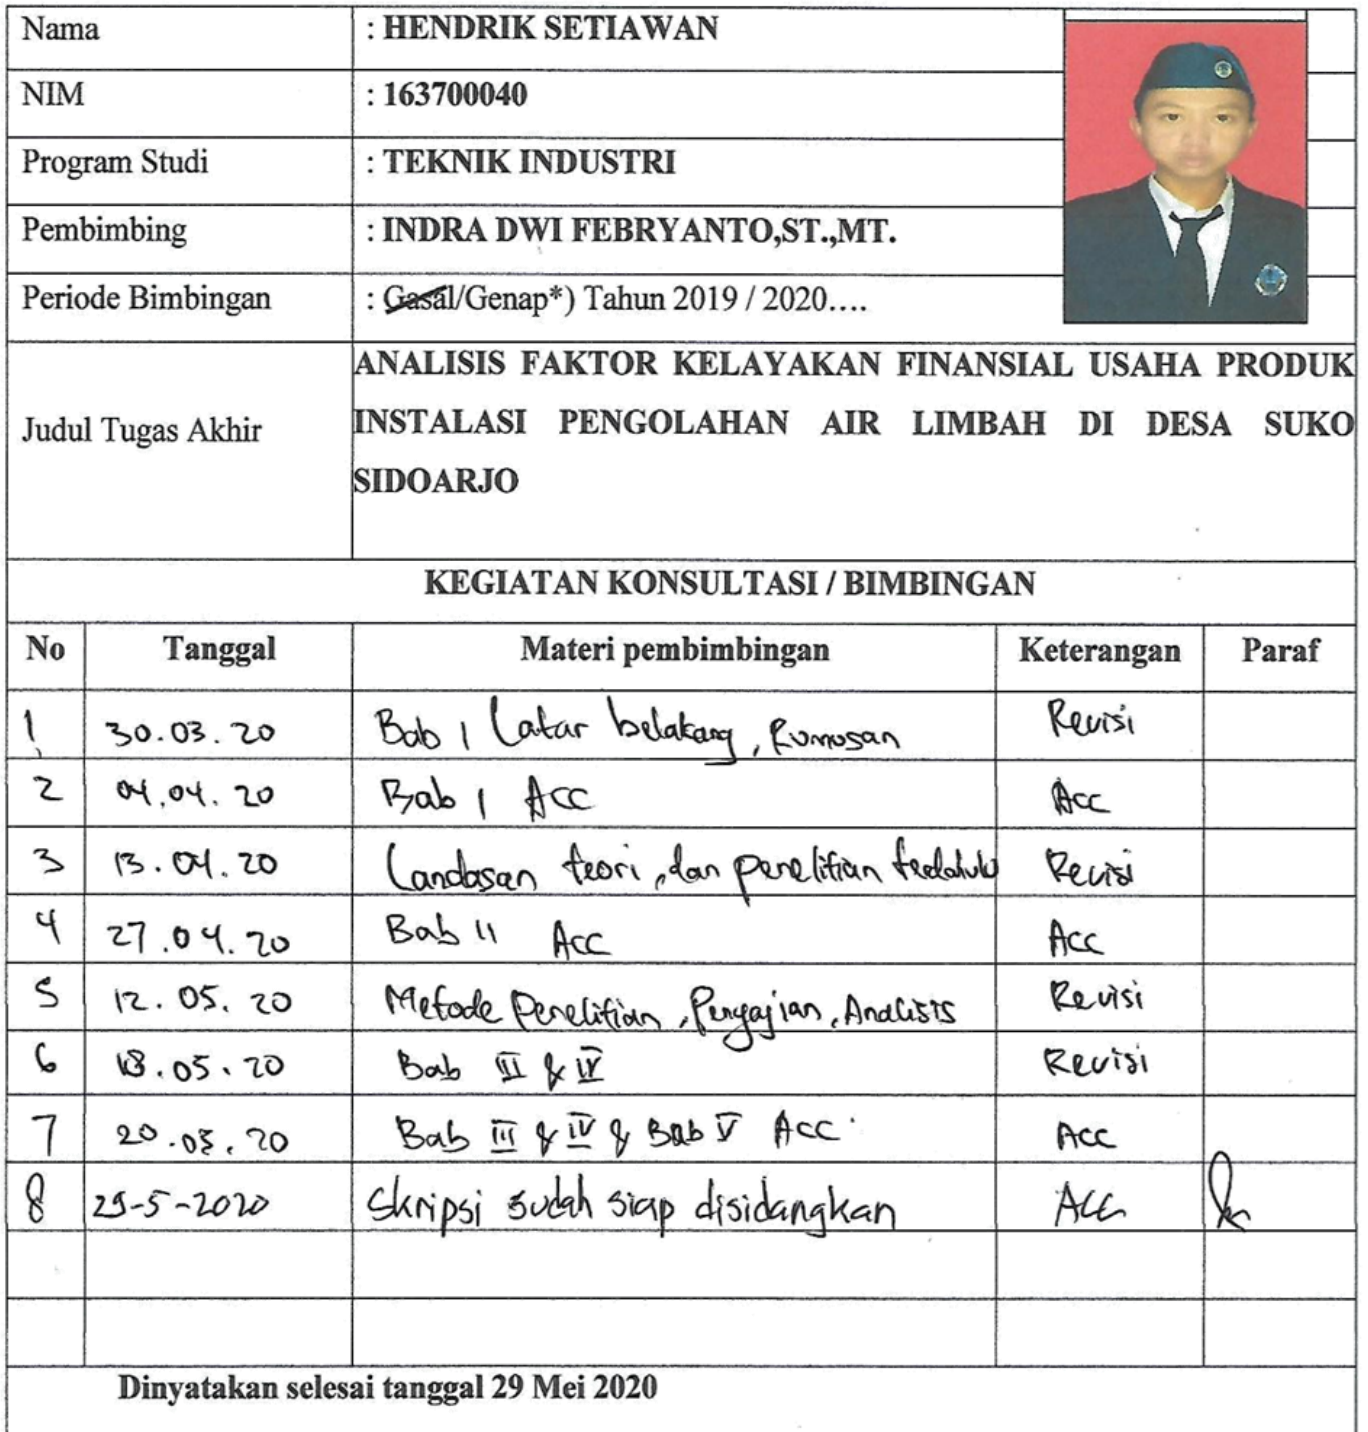 Nama : HENDRIK SETIAWAN
NIM : 163700040
Program Studi : TEKNIK INDUSTRI
Pembimbing : INDRA DWI FEBRYANTO,ST.,MT.
Periode Bimbingan : Gasal/Genap*) Tahun 2019 / 2020....
ANALISIS FAKTOR KELAYAKAN FINANSIAL USAHA PRODUK
Judul Tugas Akhir INSTALASI PENGOLAHAN AIR LIMBAH DI DESA SUKO
SIDOARJO
KEGIATAN KONSULTASI / BIMBINGAN
No Tanggal Materi pembimbingan Keterangan Paraf
1 30.03.20 Bab 1 Latar belakang, Rumusan Revisi
2 04.04.20 Bab 1 Acc Acc
3 13.04.20 Landasan teori, dan penelitian tedahulu Revisi
4 27.04.20 Bab II Acc Acc
5 12.05.20 Metode Penelitian, Pengajian, Analisis Revisi
6 18.05.20 Bab III & IV Revisi
7 20.05.20 Bab III & IV & Bab V Acc Acc
8 29-5-2020 Skripsi sudah siap disidangkan Acc
Dinyatakan selesai tanggal 29 Mei 2020